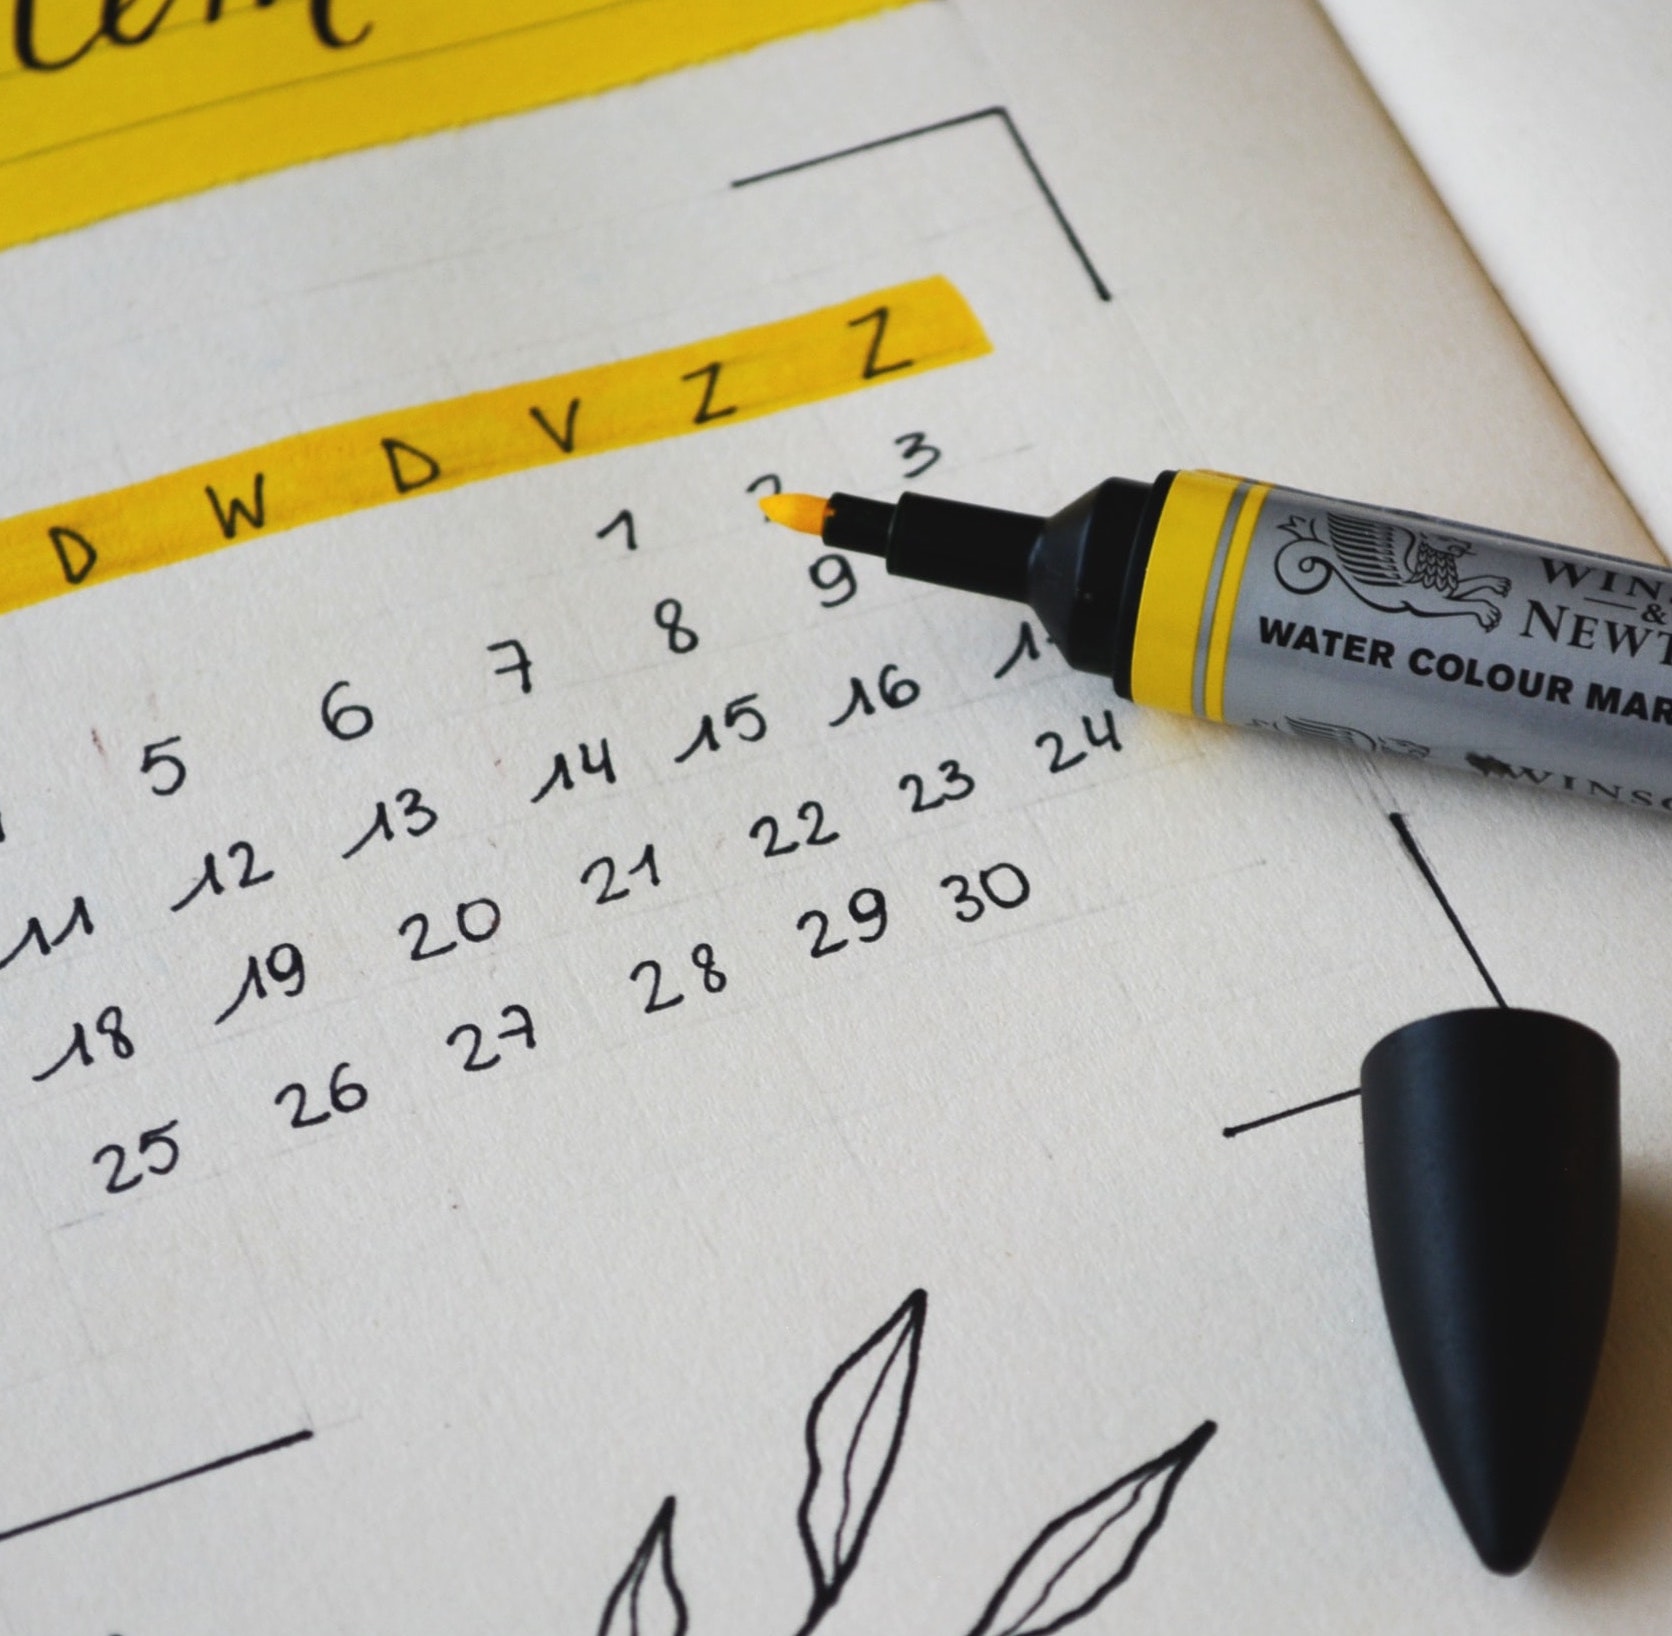 tem
D W D V Z Z
1 2 3
5 6 7 8 9
11 12 13 14 15 16
18 19 20 21 22 23 24
25 26 27 28 29 30
WATER COLOUR MAR